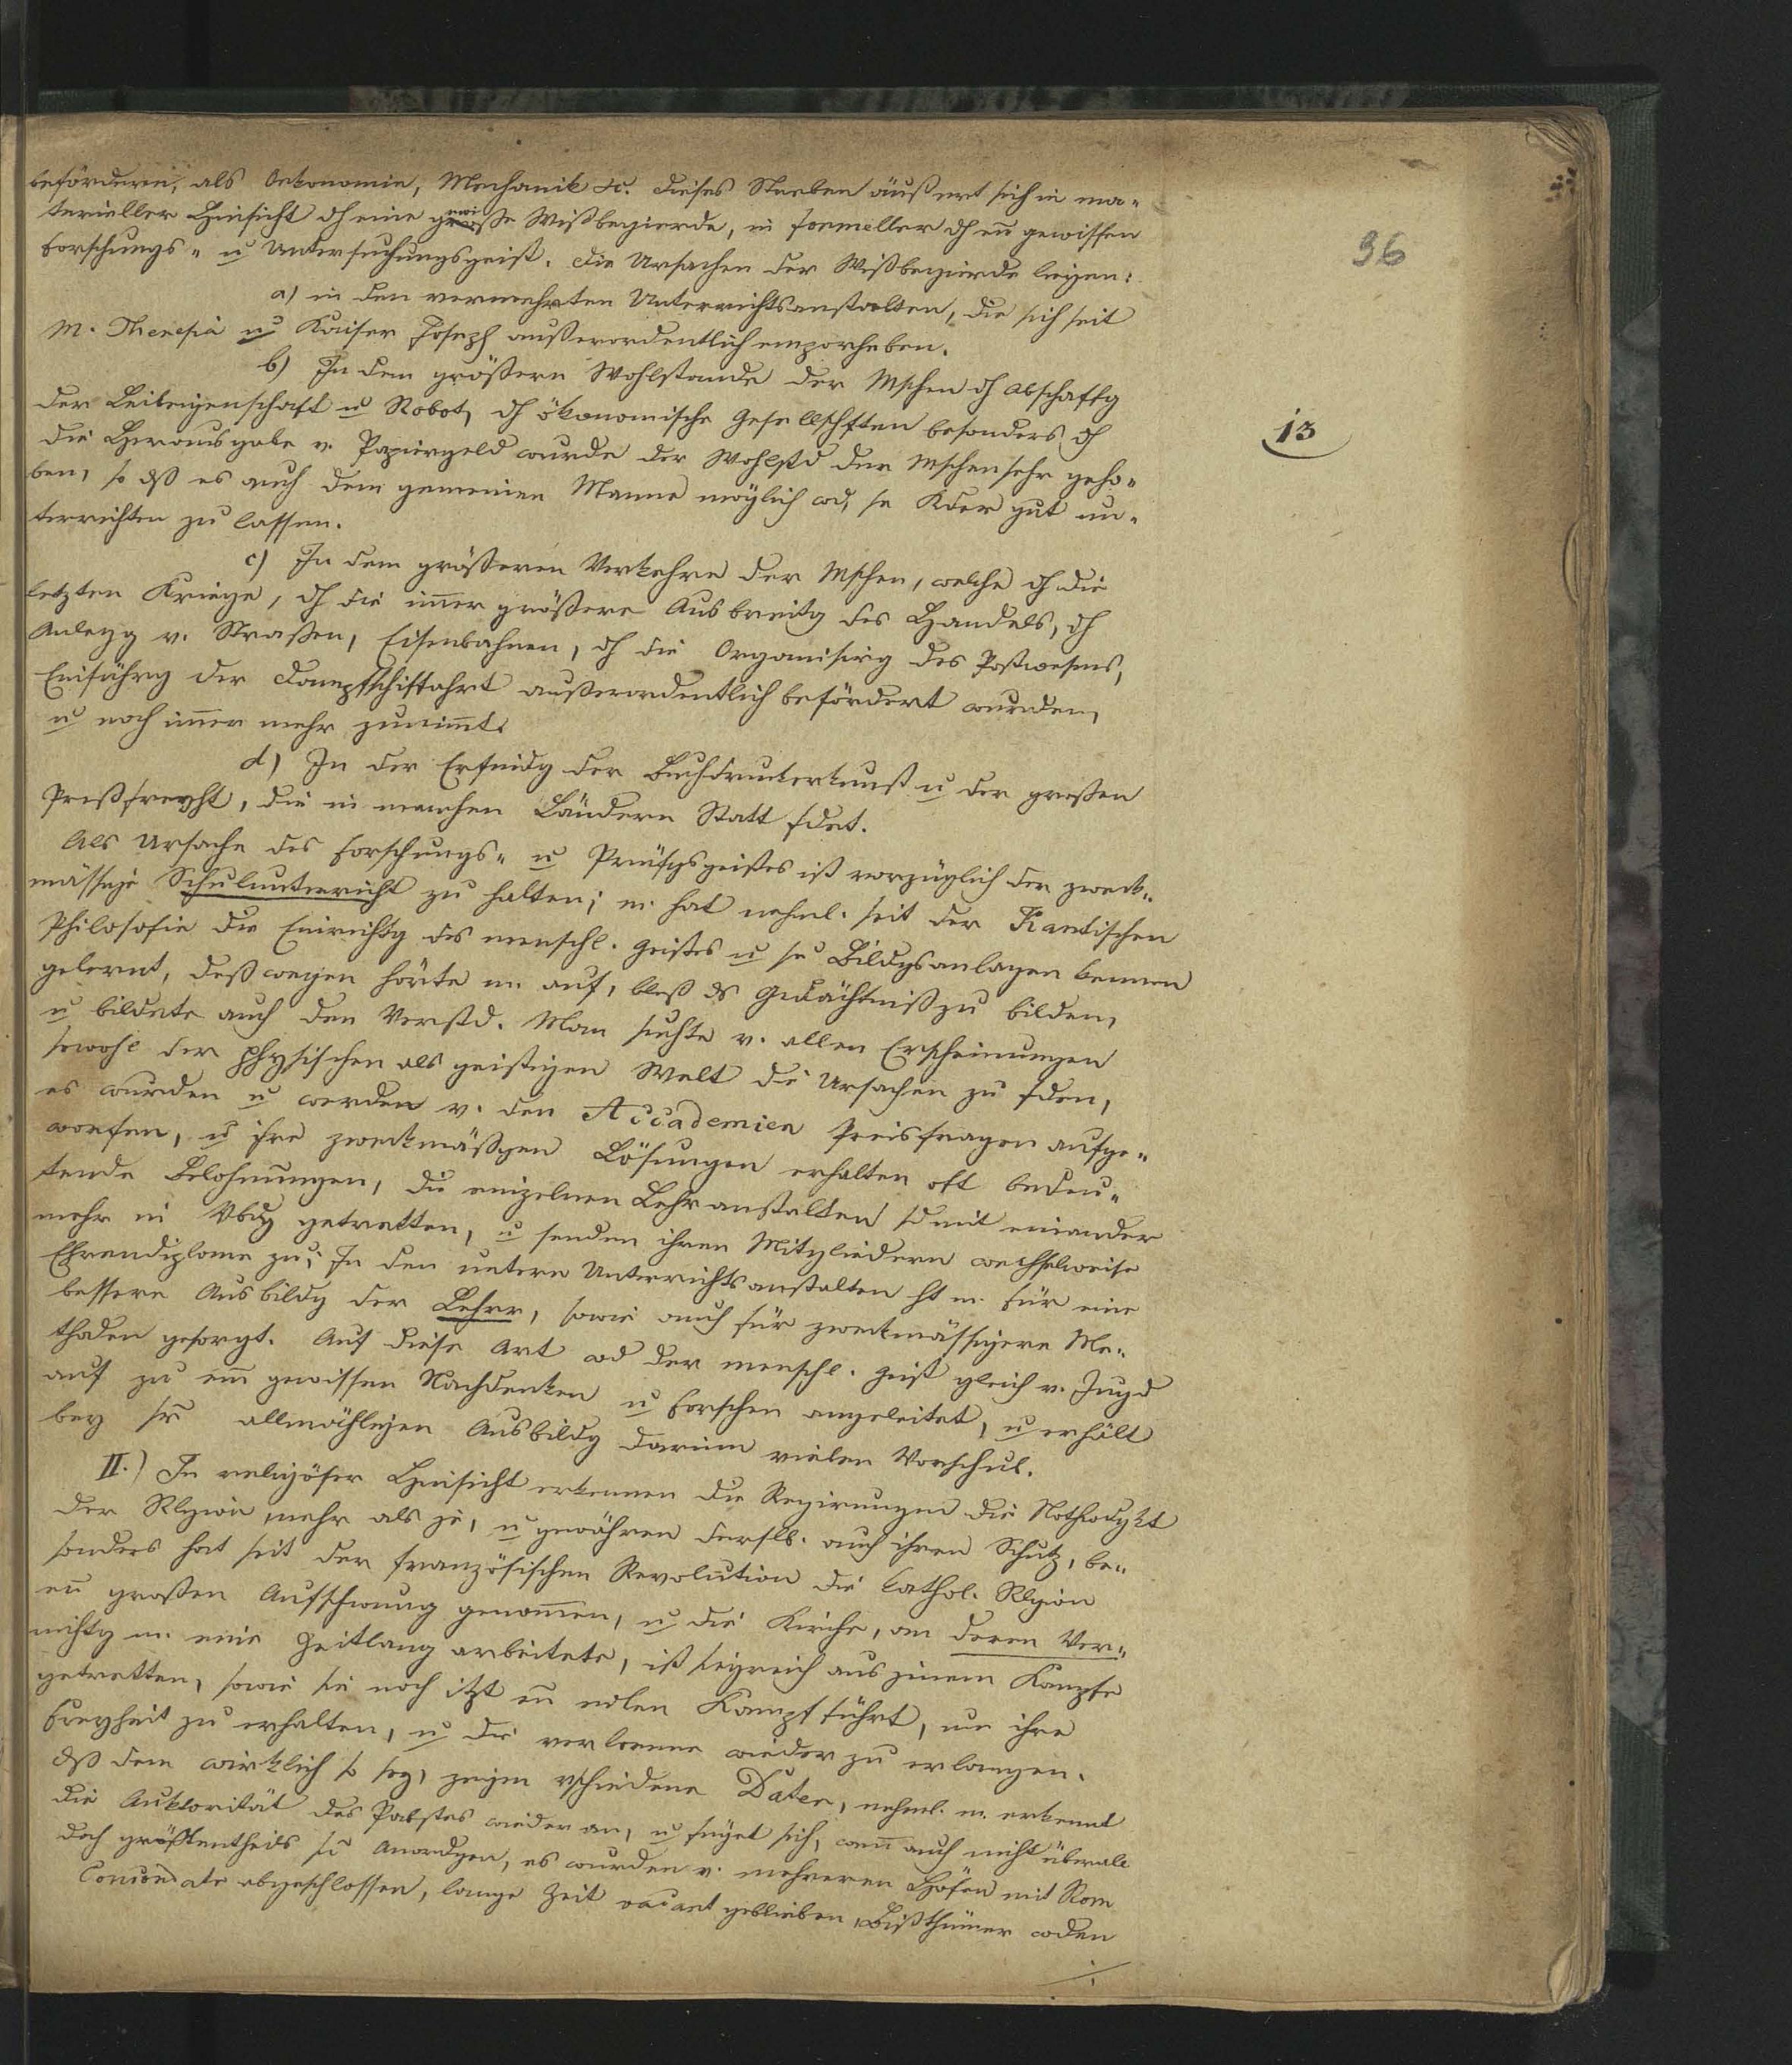 befördern, als Oekonomie, Mechanik etc. Dieses Streben äußert sich in ma-
terieller Hinsicht dh eine große Wißbegierde, in formeller dh en gewissen
Forschungs- u Untersuchungsgeist. Die Ursachen der Wißbegierde liegen:
a) in den vermehrten Unterrichtsanstalten, die sich seit
M. Theresia u Kaiser Joseph außerordentlich emporheben.
b) In dem größern Wohlstande der Mschen dh Abschaffg
der Leibeigenschaft u Robot, dh ökonomische Gesellschften besonders dh
die Herausgabe v. Papiergeld wurde der Wohlstd der Mschen sehr geho-
ben, so dß es auch dem gemeinen Manne möglich wd, se Kder gut un-
terrichten zu lassen.
c) In dem größeren Verkehre der Mschen, welche dh die
letzten Kriege, dh die immer größere Ausbreitg des Handels, dh
Anlegg v. Straßen, Eisenbahnen, dh die Organisirg des Postwesens,
Einführg der Dampfschiffahrt außerordentlich befördert wurden,
u noch immer mehr zunimmt.
d) In der Erfindg der Buchdruckerkunst u der großen
Preßfreyht, die in manchen Ländern Statt fdet.
Als Ursache des Forschungs- u Prüfgsgeistes ist vorzüglich der zweck-
mässige Schulunterricht zu halten; m. hat nehml. seit der Kantischen
Philosofie die Einrichtg des menschl. Geistes u se Bildgsanlagen kennen
gelernt, deßwegen hörte m. auf, bloß ds Gedächtniß zu bilden,
u bildete auch den Verstd. Man suchte v. allen Erscheinungen
sowohl der physischen als geistigen Welt die Ursachen zu fden,
es wurden u werden v. den Accademien Preisfragen aufge-
worfen, u ihre zweckmäßigen Lösungen erhalten oft bedeu-
tende Belohnungen, die einzelnen Lehranstalten sd mit einander
mehr in Vbdg getretten, u senden ihren Mitgliedern wechselweise
Ehrendiplome zu; In den untern Unterrichtsanstalten ht m. für eine
bessere Ausbildg der Lehrer, sowie auch für zweckmässigere Me-
thoden gesorgt. Auf diese Art wd der menschl. Geist gleich v. Jugd
auf zu em gewissen Nachdenken u Forschen angeleitet, u erhält
bey sr allmähligen Ausbildg darinn vielen Vorschub.
II.) In religiöser Hinsicht erkennen die Regirungen die Nothwdgkt
der Rlgion mehr als je, u gewähren derselb. auch ihren Schutz, be-
sonders hat seit der französischen Revolution die kathol. Rlgion
en großen Aufschwung genommen, u die Kirche, an deren Ver-
nichtg m. eine Zeitlang arbeitete, ist siegreich aus jenem Kampfe
getretten, sowie sie noch itzt en edlen Kampf führt, um ihre
Freyheit zu erhalten, u die verlorene wieder zu erlangen.
Dß dem wirklich so sey, zeigen vschiedene Daten, nehml. m. erkennt
die Auktorität des Pabstes wieder an, u füget sich, wenn auch nicht überall
doch größtentheils sn Anordgen, es wurden v. mehreren Höfen mit Rom
Concordate abgeschlossen, lange Zeit vacant geblieben, Bißthümer wden
./.
96
13